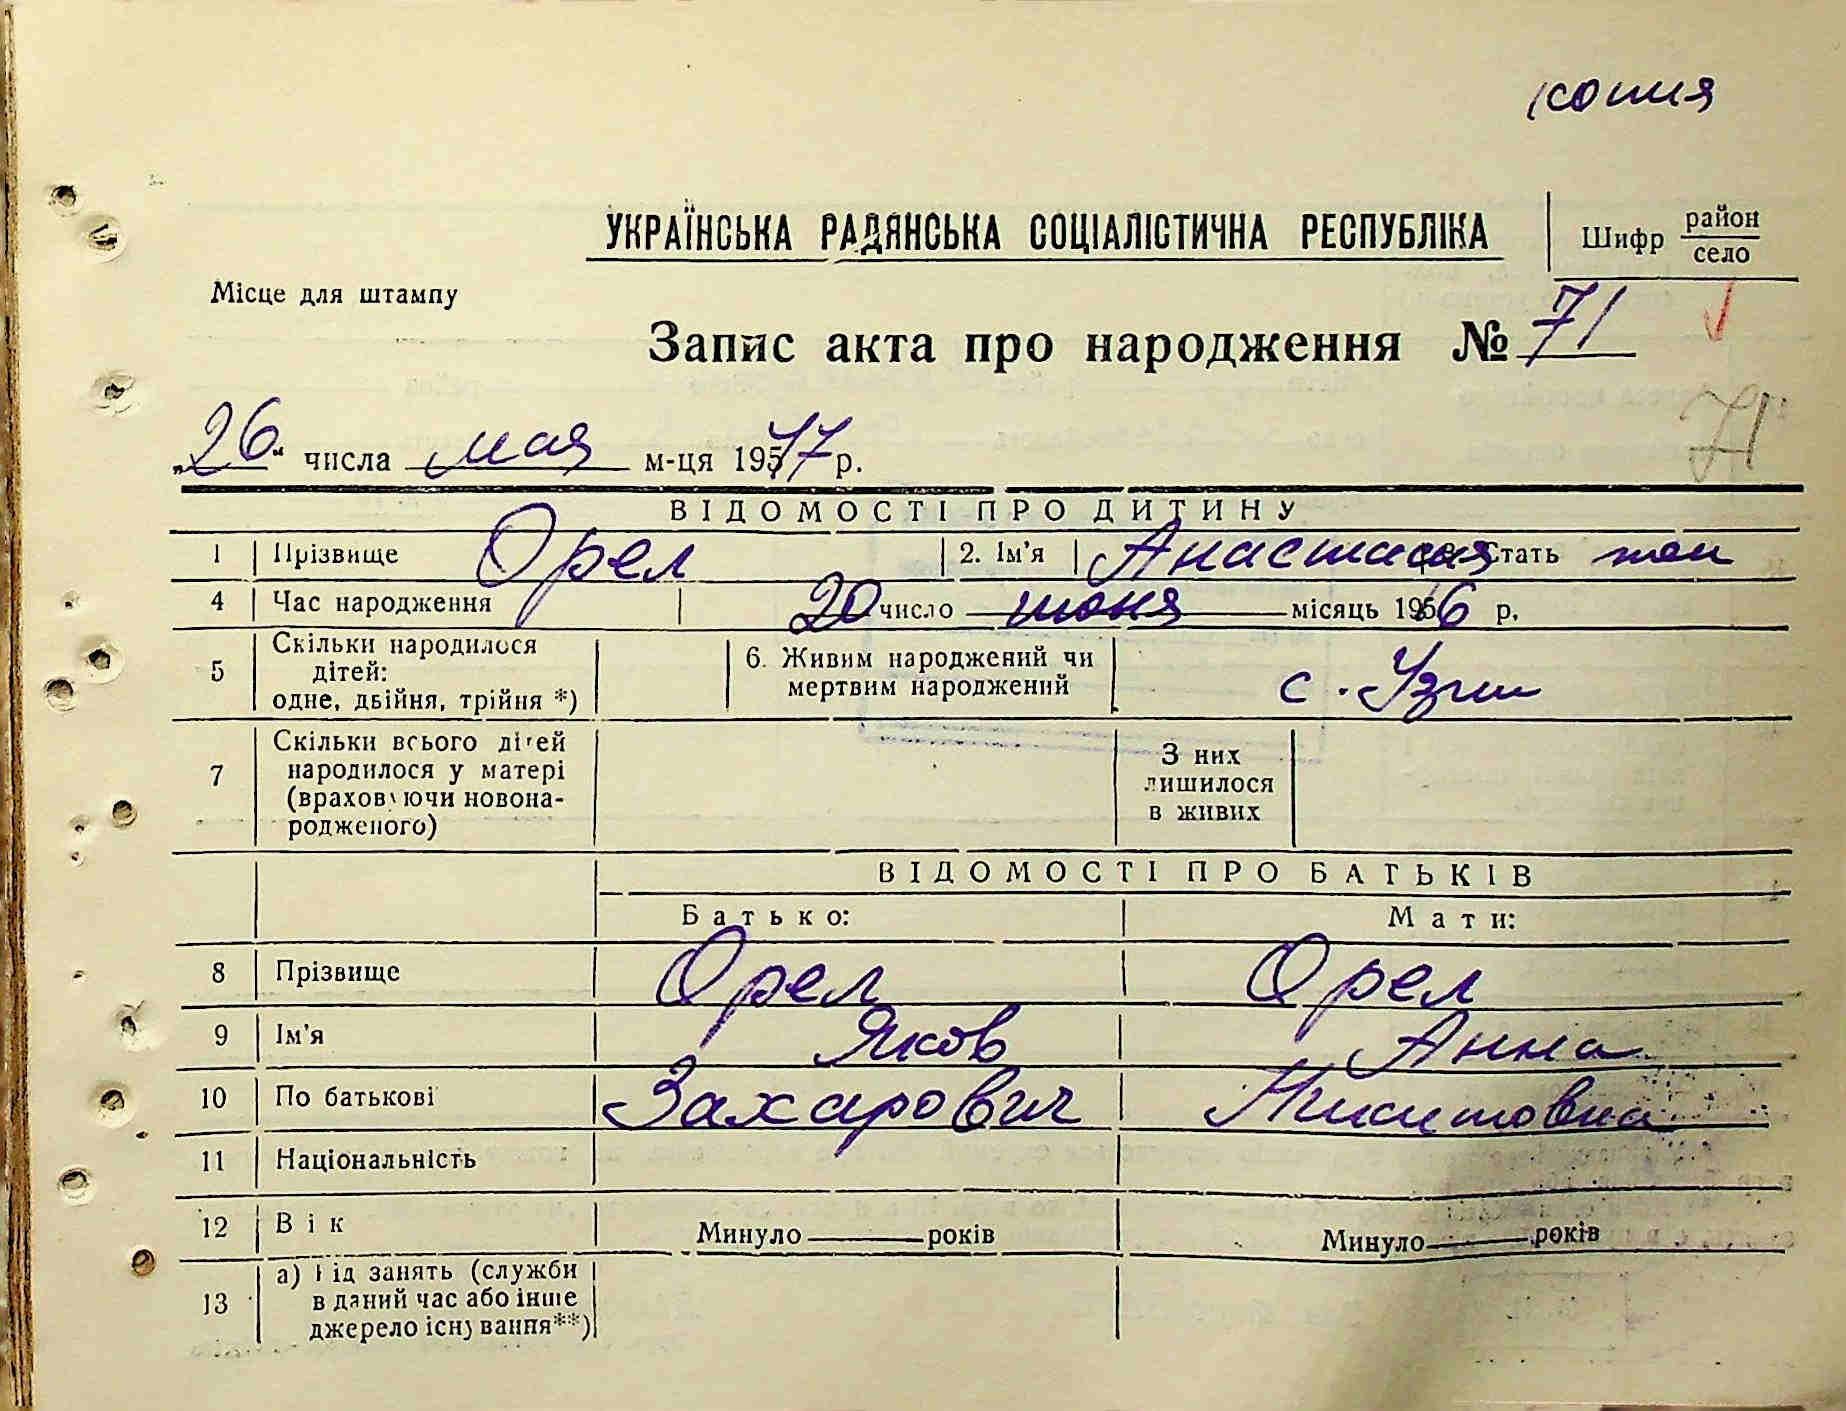 копия
УКРАЇНСЬКА РАДЯНСЬКА СОЦІАЛІСТИЧНА РЕСПУБЛІКА
Шифр район
село
Місце для штампу
Запис акта про народження № 71
71
„26" числа мая м-ця 1947 р.
ВІДОМОСТІ ПРО ДИТИНУ
1 Прізвище Орел 2. Ім'я Анастасия Стать жен
4 Час народження 20 число июня місяць 19 6 р.
5 Скільки народилося дітей: одне, двійня, трійня *) 6. Живим народжений чи мертвим народжений с. Узин
7 Скільки всього дітей народилося у матері (враховуючи новона-родженого) З них лишилося в живих
ВІДОМОСТІ ПРО БАТЬКІВ
Батько: Мати:
8 Прізвище Орел Орел
9 Ім'я Яков Анна
10 По батькові Захарович Никитовна
11 Національність
12 Вік Минуло років Минуло років
13 а) Від занять (служби в даний час або інше джерело існування**)